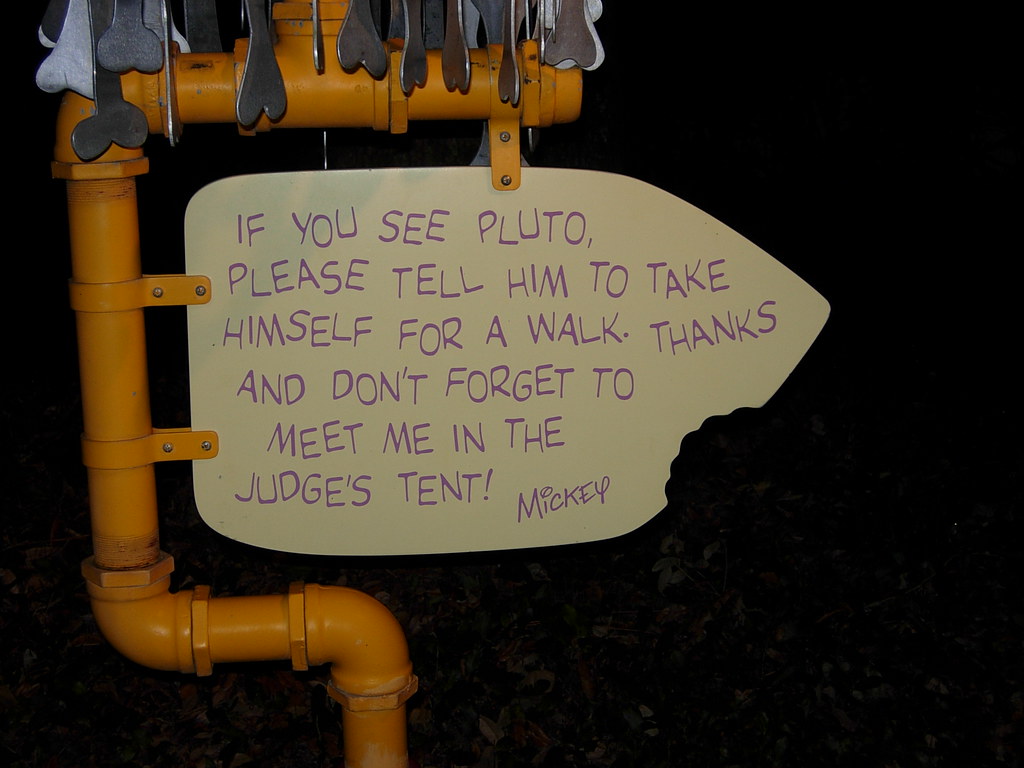 IF YOU SEE PLUTO,
PLEASE TELL HIM TO TAKE
HIMSELF FOR A WALK. THANKS
AND DON'T FORGET TO
MEET ME IN THE
JUDGE'S TENT!
MiCKEY